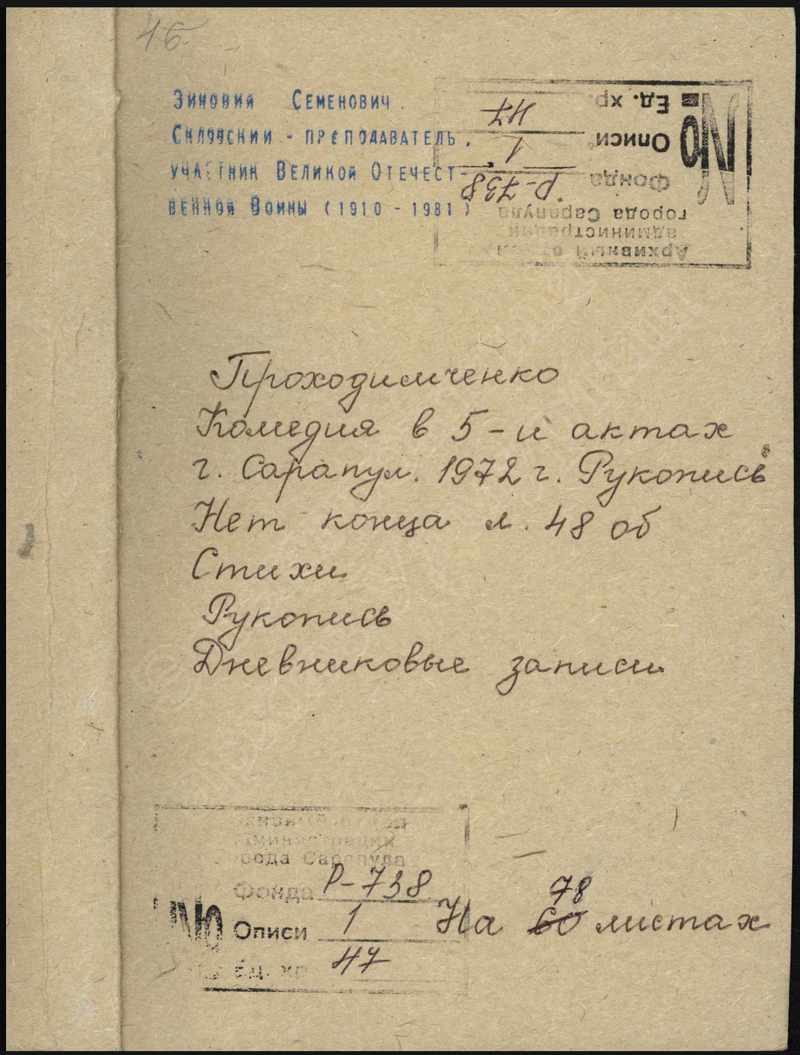 46
Зиновий Семенович
Силовский - преподаватель,
участник Великой Отечест-
венной Войны (1910 - 1981)
Архивный
администрации
города Сарапула
Фонда Р-738
№ Описи 1
Ед. хр. 47
Проходимченко
Комедия в 5-и актах
г. Сарапул. 1972 г. Рукопись
Нет конца л. 48 об
Стихи
Рукопись
Дневниковые записи
администрации
города Сарапула
Фонда Р-738
№ Описи 1
Ед. хр. 47
78
На 60 листах